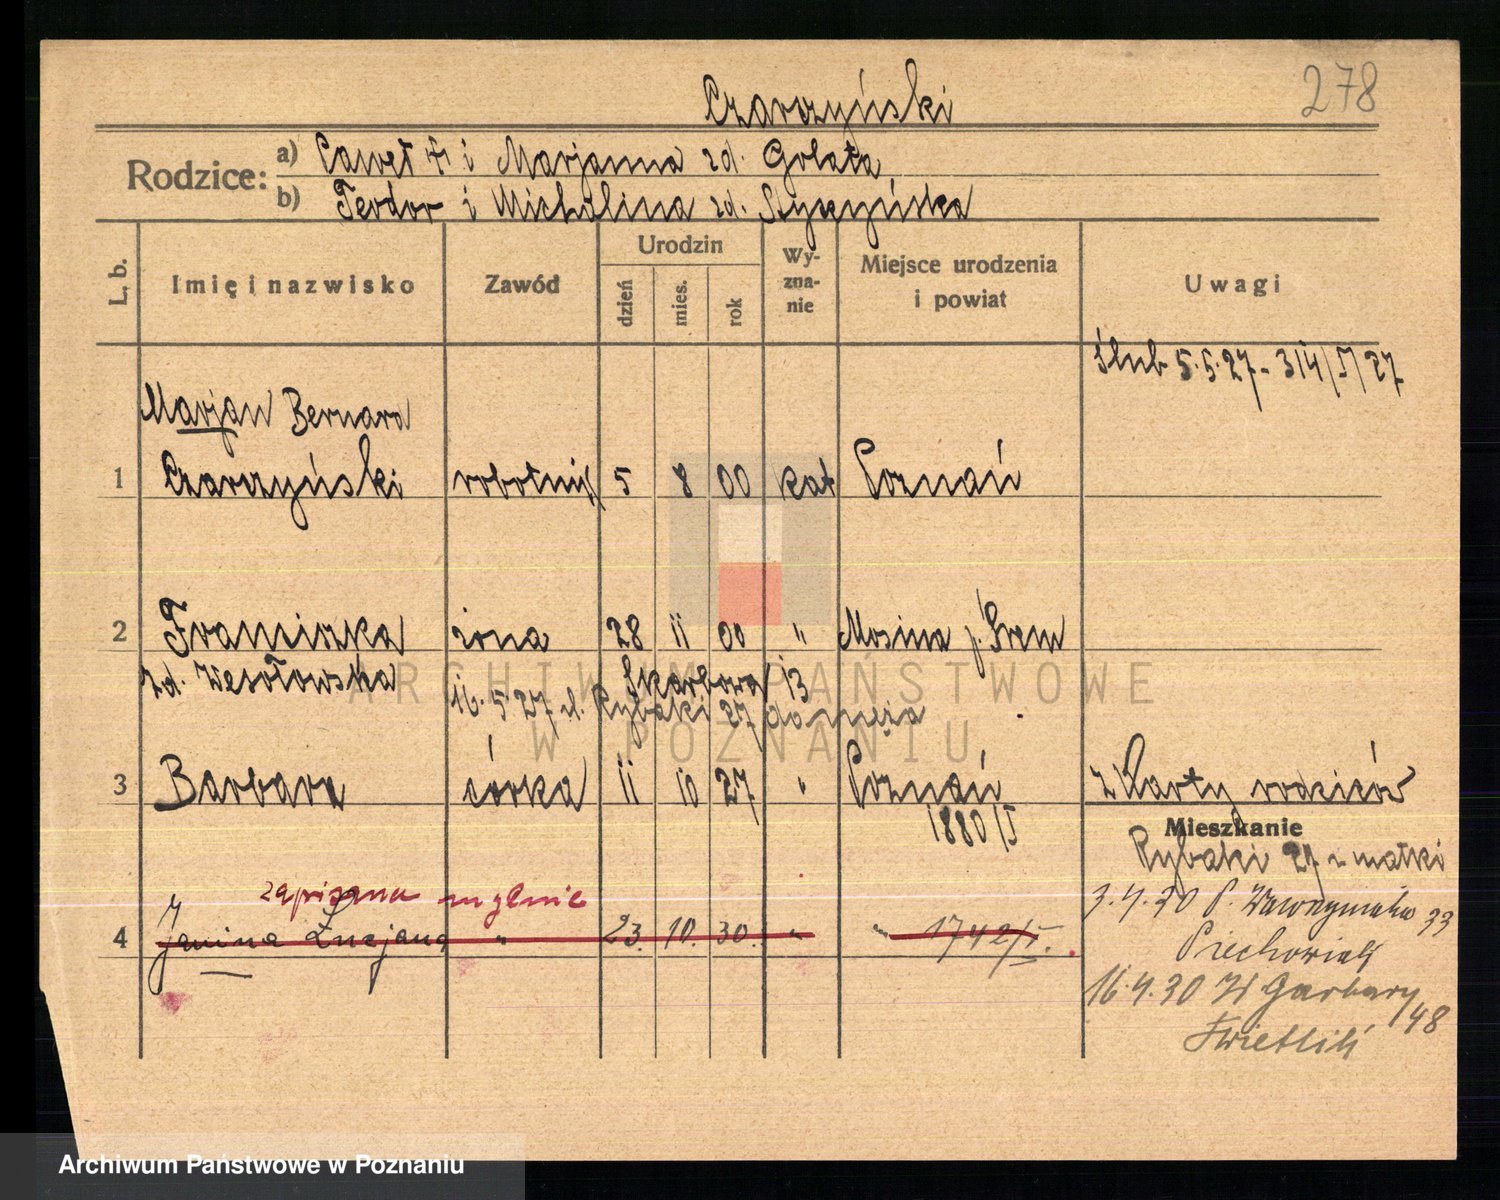 278
Czarczyński
Rodzice:
a) Paweł i Marjanna zd. Golata
b) Teodor i Michalina zd. Styszyńska
L. b.
Imię i nazwisko
Zawód
Urodzin
dzień
mies.
rok
Wy-
zna-
nie
Miejsce urodzenia
i powiat
Uwagi
ślub 5.5.27 - 314/V/27
Marjan Bernard
1 Czarczyński robotnik 5 8 00 kat Poznań
2 Franciszka żona 28 11 00 " Mosina p. Śrem
zd. Wesołowska
Skarbowa 13
16.5.27 d. Rybaki 27 do męża
3 Barbara córka 11 10 27 " Poznań z Karty rodziców
1880/I
Mieszkanie
Rybaki 27 u matki
zapisana mylnie
4 Janina Łucjana " 23. 10. 30. " " 1742/I.
3.4.30 P. Wawrzyniaka 33
Piechowiak
16.4.30 W Garbary 48
Świetlik
ARCHIWUM PAŃSTWOWE
W POZNANIU
Archiwum Państwowe w Poznaniu